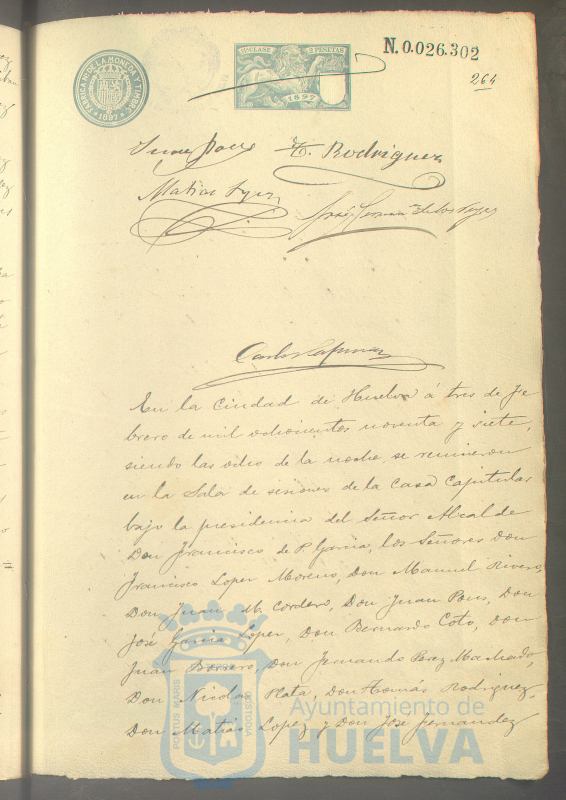 FABRICA NL. DE LA MONEDA Y TIMBRE
1897
11ª CLASE 2 PESETAS
1897
N.0.026.302
264
T. Rodriguez
Matias
En la ciudad de Huelva á tres de Fe
brero de mil ochocientos noventa y siete,
siendo las ocho de la noche, se reunieron
en la Sala de sesiones de la Casa Capitular
bajo la presidencia del Señor Alcalde
Don Francisco de P. Garcia, los Señores Don
Francisco Lopez Moreno, Don Manuel Rivero,
Don Juan M. Cordero, Don Juan Pons, Don
José Garcia Lopez, Don Bernardo Coto, Don
Juan Borrero, Don Fernando Perez Machado,
Don Nicolas Plata, Don Tomás Rodriguez,
Don Matias Lopez y Don José Fernandez
PORTUS MARIS
CUSTODIA
Ayuntamiento de
HUELVA